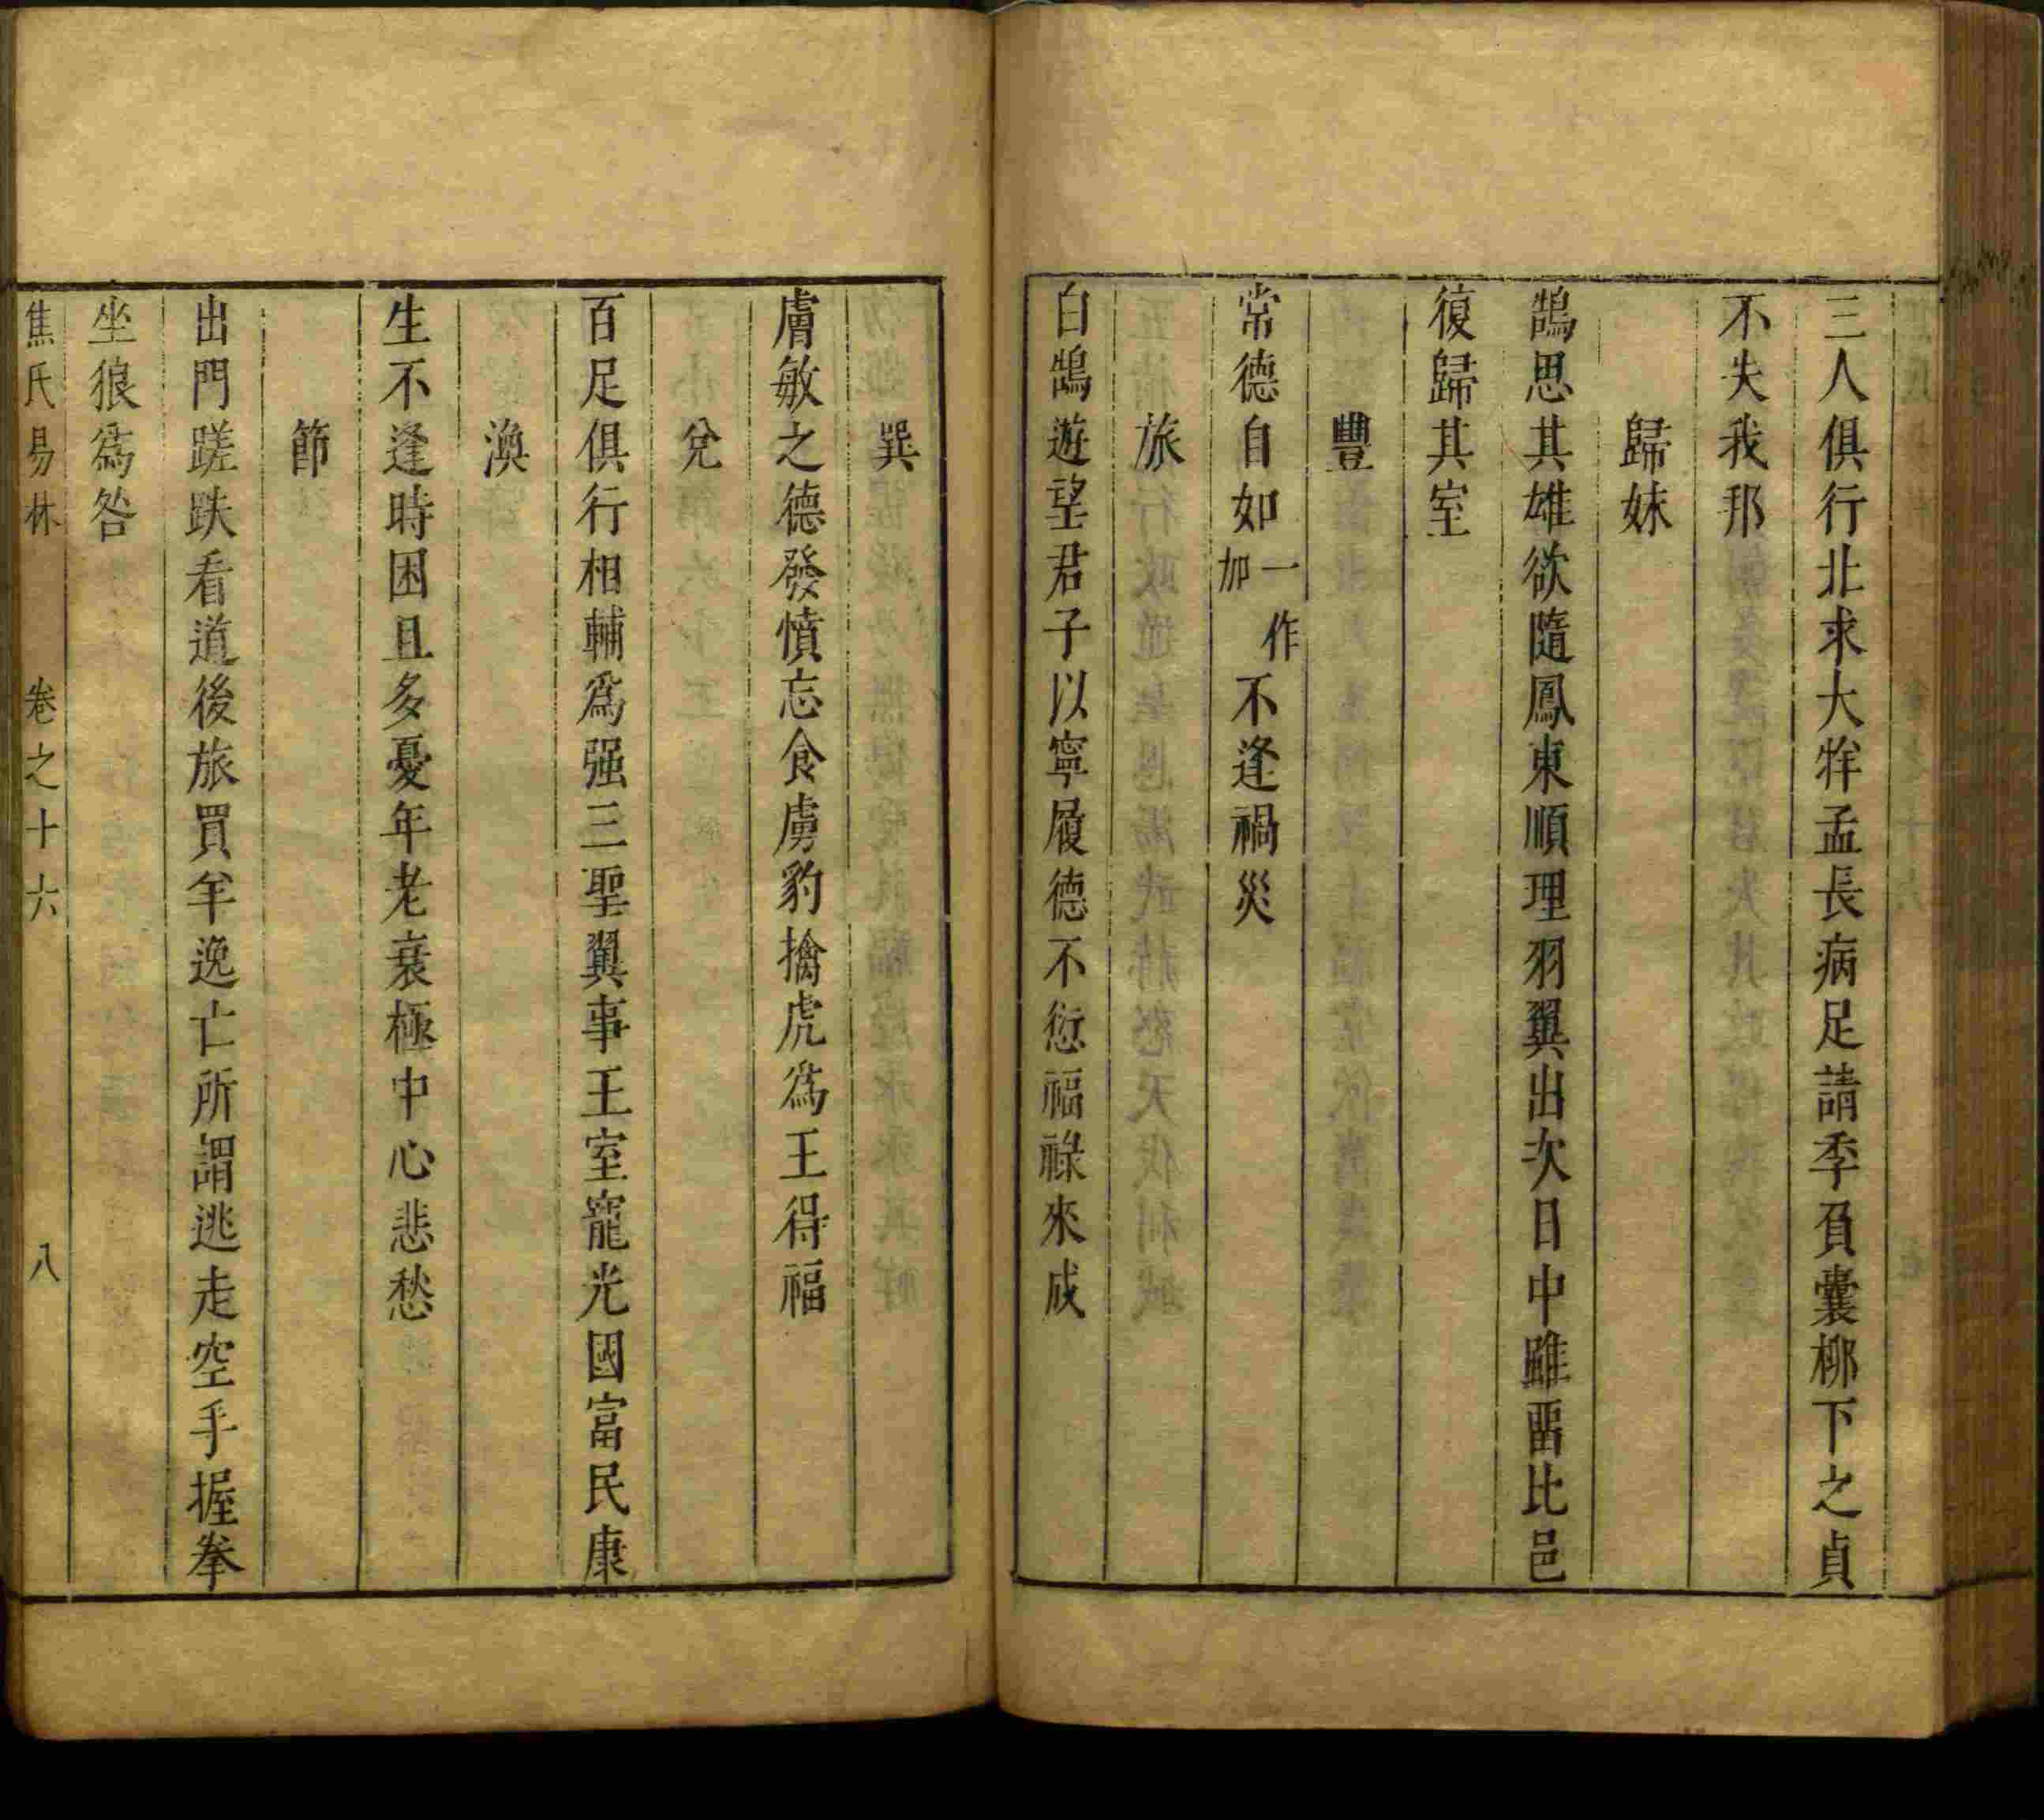 三人俱行北求大牂孟長病足請季負囊栁下之貞
不失我邦
歸妹
鵠思其雄欲隨鳳東順理羽翼出次日中雖畱比邑
復歸其室
豐
常德自如一作加不逢禍災
旅
白鵠遊望君子以寧履德不愆福祿來成
巽
膚敏之德發憤忘食虜豹擒虎爲王得福
兌
百足俱行相輔爲强三聖翼事王室寵光國富民康
渙
生不逢時困且多憂年老衰極中心悲愁
節
出門蹉跌看道後旅買羊逸亡所謂逃走空手握拳
坐狼爲咎
焦氏易林 卷之十六 八